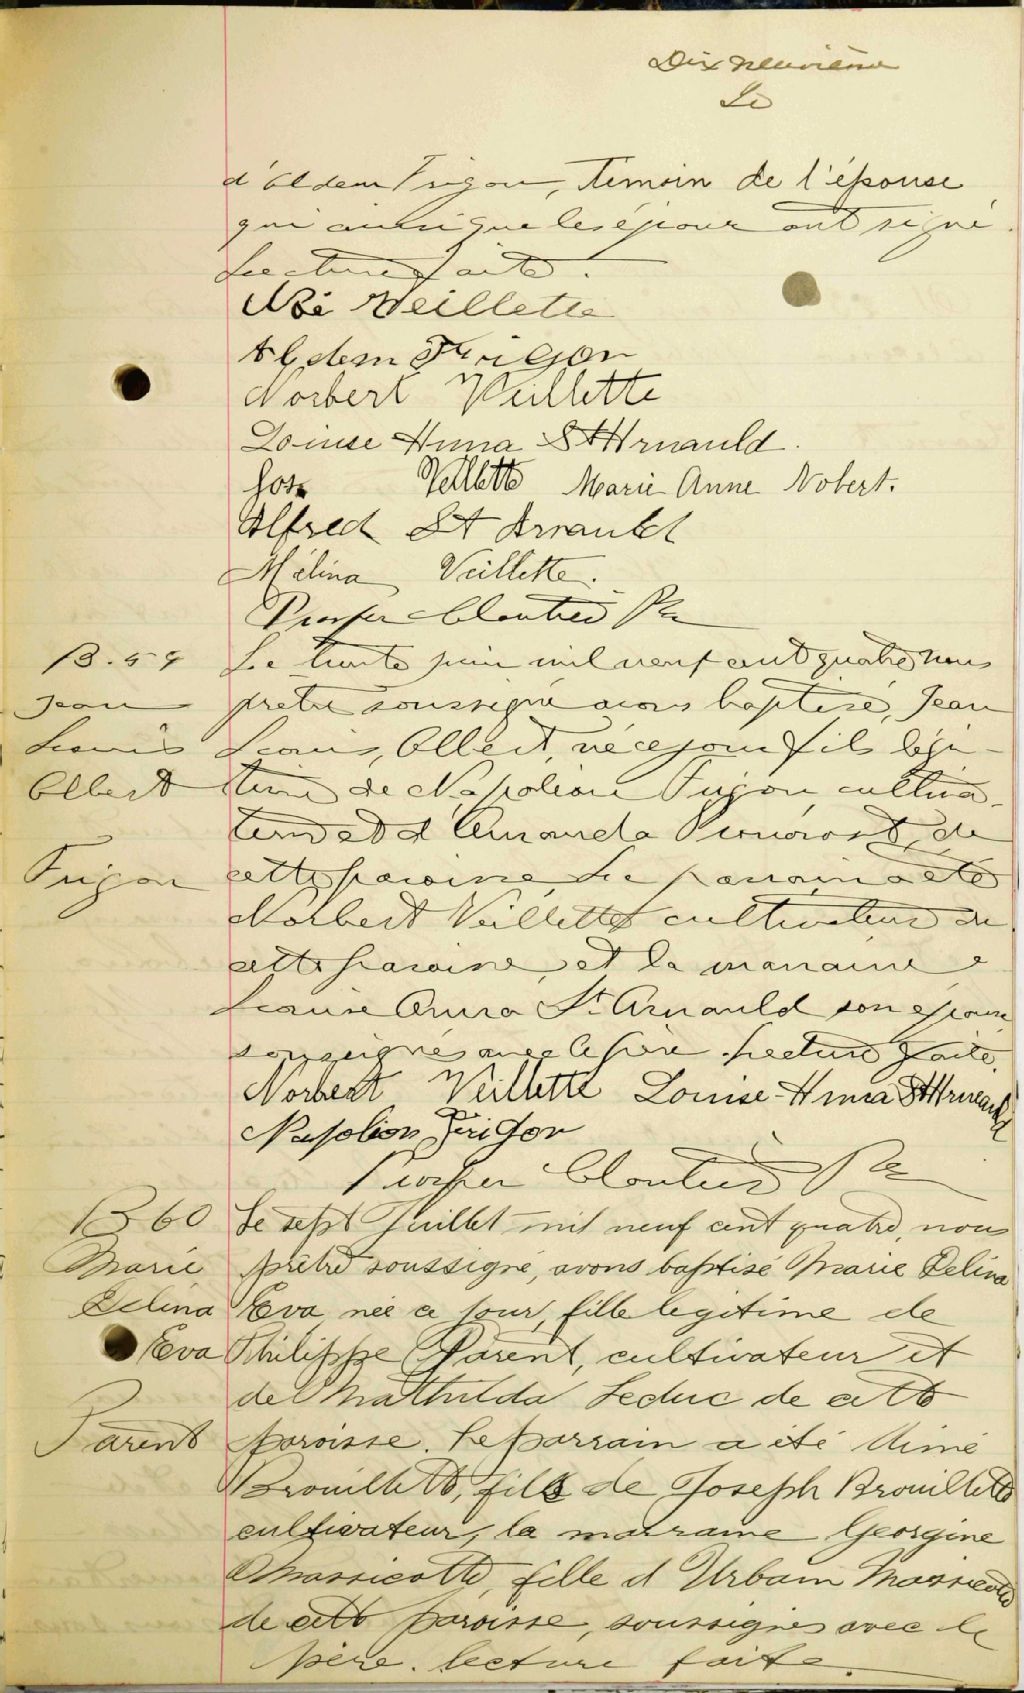 Dix neuvième
Le
d'Aldem Frigon, témoin de l'épouse
qui ainsi que les époux ont signé.
Lecture faite.
Noé Veillette
Aldem Frigon
Norbert Veillette
Louise Anna St Arnauld.
Jos. Veillette Marie Anne Nobert.
Alfred St Arnauld
Mélina Veillette.
Prosper Cloutier Ptre
B. 59 Le trente juin mil neuf cent quatre nous
Jean prêtre soussigné avons baptisé, Jean
Louis Louis, Albert, né ce jour fils légi-
Albert time de Napoléon Frigon cultiva-
teur et d'Amanda Pronovost, de
Frigon cette paroisse. Le parrain a été
Norbert Veillette cultivateur de
cette paroisse et la marraine
Louise Anna St Arnauld son épouse
soussignés avec le père. Lecture faite.
Norbert Veillette Louise-Anna St Arnauld
Napoléon Frigon
Prosper Cloutier Ptre
B 60 Le sept Juillet mil neuf cent quatre, nous
Marie prêtre soussigné, avons baptisé Marie Délina
Délina Eva née ce jour, fille légitime de
Eva Philippe Parent, cultivateur et
de Mathilda Leduc de cette
Parent paroisse. Le parrain a été Aimé
Brouillette, fils de Joseph Brouillette
cultivateur, la marraine Georgine
Massicotte, fille d'Urbain Massicotte
de cette paroisse, soussignés avec le
père. lecture faite.